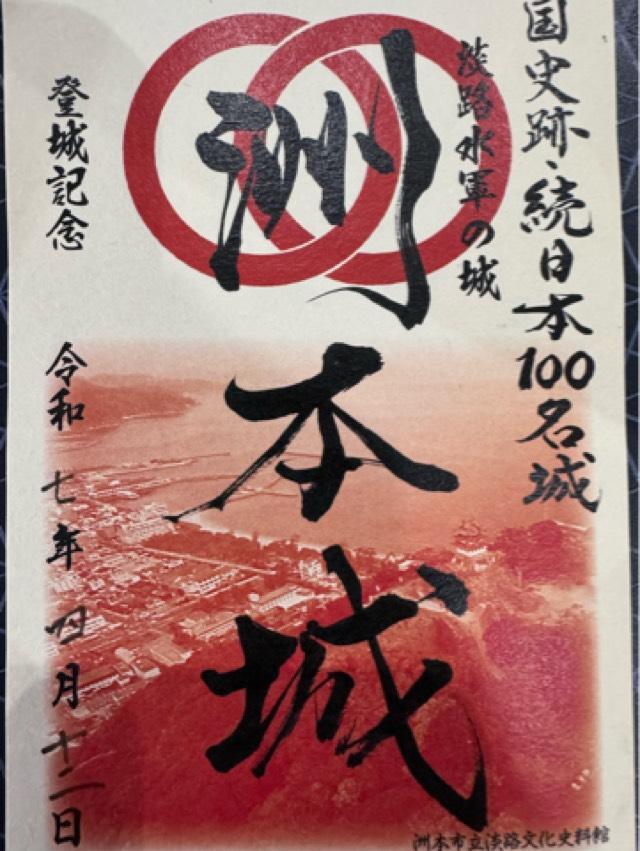 国史跡・続日本100名城
淡路水軍の城
洲本城
登城記念
令和七年四月十二日
洲本市立淡路文化史料館